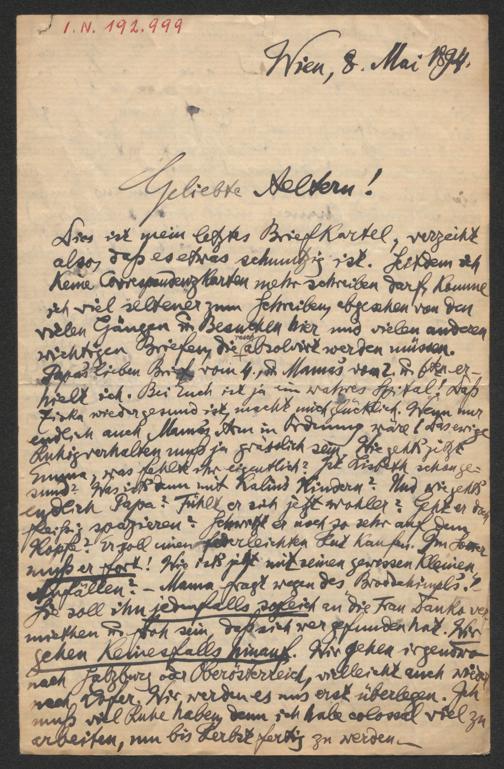 I.N. 192.999
Wien, 8. Mai 1894.
Geliebte Aeltern!
Dies ist mein letztes Briefkartel, verzeiht
also, daß es etwas schmutzig ist. Seitdem ich
keine Correspondenzkarten mehr schreiben darf, komme
ich viel seltener zum Schreiben, abgesehen von den
vielen Gängen u. Besuchen hier und vielen anderen
wichtigen Briefen, die rasch absolvirt werden müssen.
Papas lieben Brief vom 4. u. Mamas vom 2. u. er-
hielt ich. Bei Euch ist ja ein wahres Spital! Daß
wieder gesund ist, macht mich glücklich. Wenn nur
endlich auch Mamas Arm in Ordnung wäre! Das ewige
Ruhigverhalten muß ja grässlich sein. Wie geht's jetzt
Emma, was fehlt ihr eigentlich? Ist schon ge-
sund? Was ist denn mit Kindern? Und wie geht's
endlich Papa? Fühlt er sich jetzt wohler? Geht er denn
fleißig spazieren? Schwitzt er noch so sehr auf dem
Kopfe? Er soll einen federleichten Hut kaufen. Im Sommer
muß er fort! Wie ist's jetzt mit seinen gewissen kleinen
Anfällen? – Mama fragt wegen des
Sie soll ihn jedenfalls sogleich an die Frau ver-
miethen u. froh sein, daß sich wer gefunden hat. Wir
gehen keinesfalls hinauf. Wir gehen irgendwo
nach Salzburg oder Oberösterreich, vielleicht auch wieder
nach . Wir werden es uns erst überlegen. Ich
muß viel Ruhe haben, denn ich habe colossal viel zu
arbeiten, um bis Herbst fertig zu werden. –